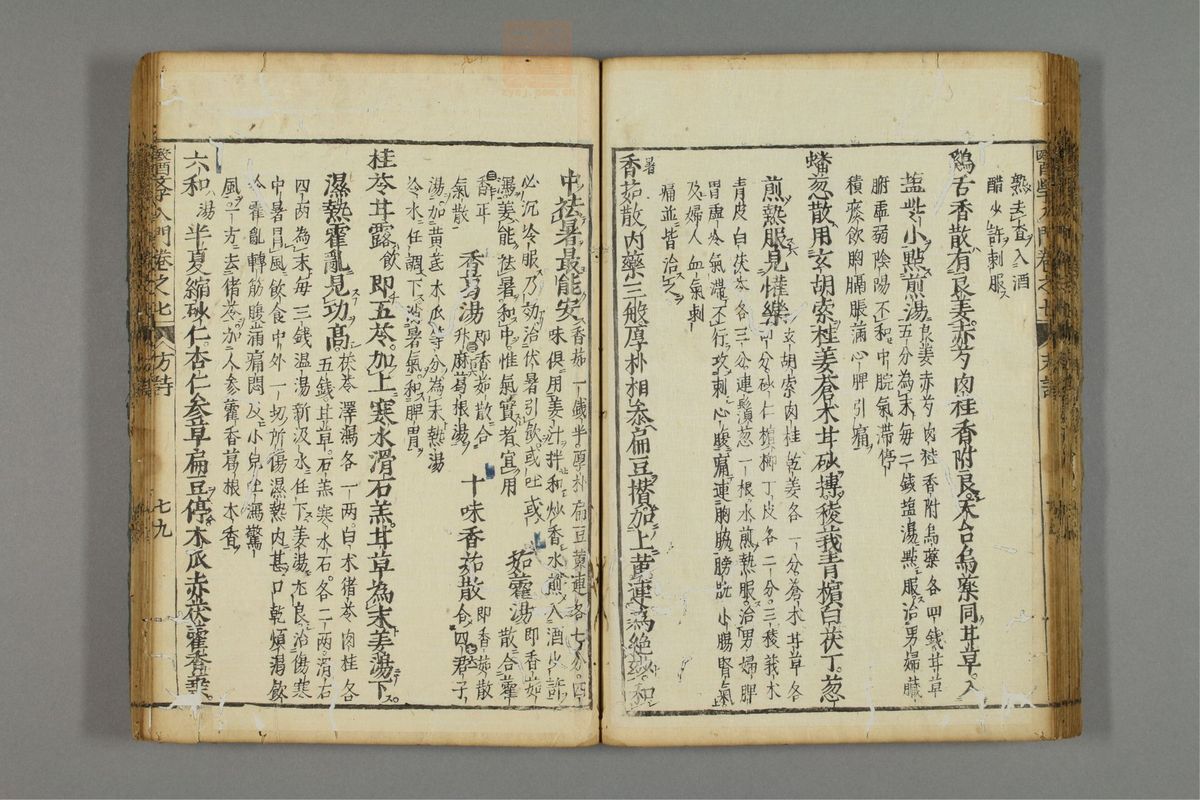 熱去査入酒
醋少許刺服
鷄舌香散有良姜赤芍肉桂香附良天台烏藥同甘草入
塩些小點煎湯良姜赤芍肉桂香附烏藥各四錢甘草
五分為末每二錢塩湯點服治男婦臓
腑虛弱陰陽不和中脘氣滯停
積痰飲胸膈脹滿心脾引痛
蟠葱散用玄胡索桂姜蒼朮甘砂摶稜莪青檳白茯丁葱
煎熱服見懽樂玄胡索肉桂乾姜各一分蒼朮甘草各
分砂仁檳榔丁皮各二分三稜莪朮
青皮白茯苓各三分連鬚葱一根水煎熱服治男婦脾
胃虛冷氣滯不行攻刺心腹痛連胸脇膀胱小腸腎氣
及婦人血氣刺
痛並皆治之
暑
香茹散內藥三般厚朴相參扁豆攢加上黃連為絕妙和
中祛暑最能安香茹一錢半厚朴扁豆黃連各七分四
味俱用姜汁拌和炒香水煎入酒少許
必沉冷服乃効治伏暑引飲或吐或
瀉姜能祛暑和中惟氣實者宜用
茹藿湯即香茹
散合藿
香耳
氣散
香葛湯即香茹散合
升麻葛根湯
十味香茹散即香茹散
合四君子
湯加黃芪木瓜等分為末熱湯
冷水任調下消暑氣和脾胃
桂苓甘露飲即五苓加上寒水滑石羔甘草為末姜湯下
濕熱霍亂見功高茯苓澤瀉各一兩白朮猪苓肉桂各
五錢甘草石羔寒水石各二兩滑石
四兩為末每三錢温湯新汲水任下姜湯尤良治傷寒
中暑冒風飲食中外一切所傷濕熱內甚口乾煩渴飲
冷霍亂轉筋腹滿痛悶及小兒吐瀉驚
風一方去猪苓加人參藿香葛根木香
六和湯半夏縮砂仁杏仁參草扁豆停木瓜赤茯藿香葉
醫學入門卷之七
方詩
七九